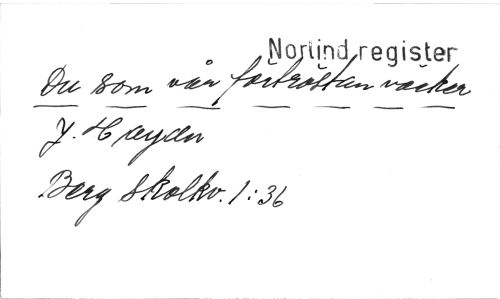 Norlind register
Du som vår förtröstan väcker
J. Haydn
Berg Skolkv. 1:36